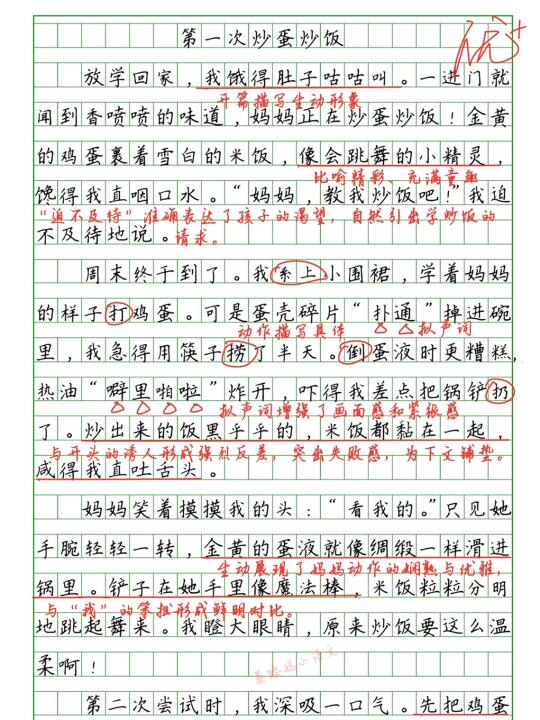 第一次炒蛋炒饭
优+
放学回家，我饿得肚子咕咕叫。一进门就
开篇描写生动形象
闻到香喷喷的味道，妈妈正在炒蛋炒饭！金黄
的鸡蛋裹着雪白的米饭，像会跳舞的小精灵，
比喻精彩、充满童趣
馋得我直咽口水。“妈妈，教我炒饭吧！”我迫
“迫不及待”准确表达了孩子的渴望，自然引出学炒饭的
不及待地说。
请求。
周末终于到了。我系上小围裙，学着妈妈
的样子打鸡蛋。可是蛋壳碎片“扑通”掉进碗
动作描写具体 拟声词
里，我急得用筷子捞了半天。倒蛋液时更糟糕，
热油“噼里啪啦”炸开，吓得我差点把锅铲扔
拟声词增强了画面感和紧张感
了。炒出来的饭黑乎乎的，米饭都黏在一起，
与开头的诱人形成强烈反差，突出失败感，为下文铺垫。
咸得我直吐舌头。
妈妈笑着摸摸我的头：“看我的。”只见她
手腕轻轻一转，金黄的蛋液就像绸缎一样滑进
生动展现了妈妈动作的娴熟与优雅，
锅里。铲子在她手里像魔法棒，米饭粒粒分明
与“我”的笨拙形成鲜明对比。
地跳起舞来。我瞪大眼睛，原来炒饭要这么温
柔啊！
第二次尝试时，我深吸一口气。先把鸡蛋